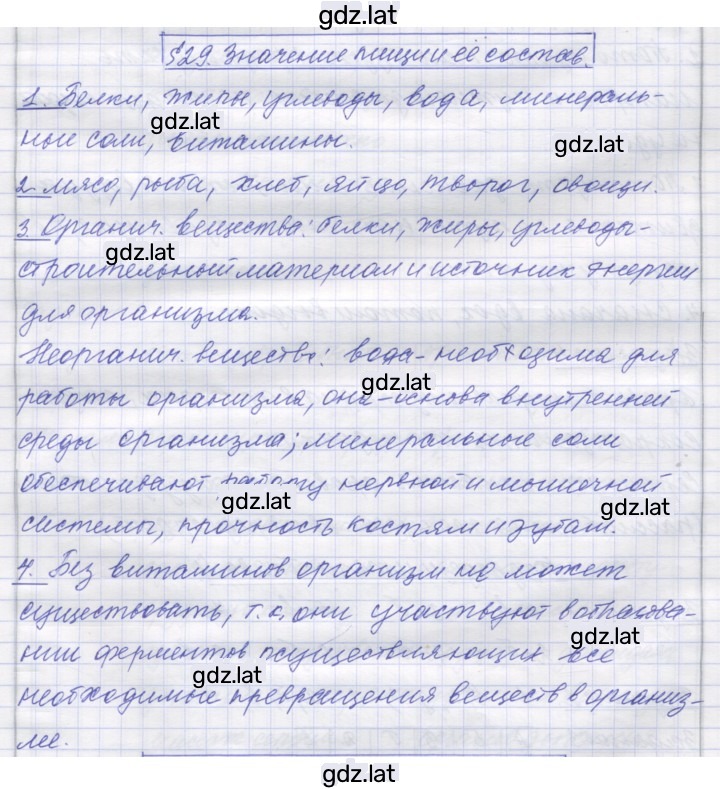 gdz.lat
§29. Значение пищи и её состав.
1. Белки, жиры, углеводы, вода, минераль-
gdz.lat
ные соли, витамины.
gdz.lat
2. мясо, рыба, хлеб, яйцо, творог, овощи.
3. Органич. вещества: белки, жиры, углеводы-
gdz.lat
строительный материал и источник энергии
для организма.
Неорганич. вещества: вода-необходима для
gdz.lat
работы организма, она-основа внутренней
среды организма; минеральные соли
обеспечивают работу нервной и мышечной
gdz.lat
gdz.lat
системы, прочность костям и зубам.
4. Без витаминов организм не может
существовать, т.к. они участвуют в образова-
gdz.lat
нии ферментов осуществляющих все
gdz.lat
необходимые превращения веществ в организ-
ме.
gdz.lat